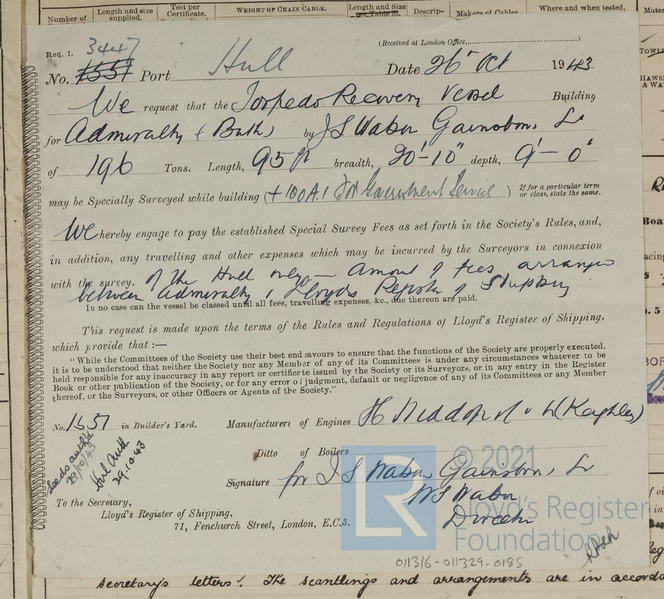 Number of
Length and size supplied.
Test per Certificate.
WEIGHT OF CHAIN CABLE.
Length and size
Descrip-
Makers of Cables
Where and when tested,
(Received at London Office,..........)
Req. 1. 3447
No. 1557 Port Hull Date 26 Oct 1943
We request that the Torpedo Recovery Vessel Building
for Admiralty (Bath) by J S Watson Gainsboro, Ld
of 196 Tons. Length, 95 ft breadth, 20'-10" depth, 9'-0"
may be Specially Surveyed while building (+100A.1 for Government Service)
If for a particular term or class, state the same.
We hereby engage to pay the established Special Survey Fees as set forth in the Society's Rules, and,
in addition, any travelling and other expenses which may be incurred by the Surveyors in connexion
with the survey. of the Hull only - Amount of fees arranged
between Admiralty & Lloyds Register of Shipping
In no case can the vessel be classed until all fees, travelling expenses, &c., due thereon are paid.
This request is made upon the terms of the Rules and Regulations of Lloyd's Register of Shipping,
which provide that :—
"While the Committees of the Society use their best endeavours to ensure that the functions of the Society are properly executed,
it is to be understood that neither the Society nor any Member of any of its Committees is under any circumstances whatever to be
held responsible for any inaccuracy in any report or certificate issued by the Society or its Surveyors, or in any entry in the Register
Book or other publication of the Society, or for any error of judgment, default or negligence of any of its Committees or any Member
thereof, or the Surveyors, or other Officers or Agents of the Society."
No. 1557 in Builder's Yard.
Manufacturer of Engines H Widdop & Co Ld (Keighley)
Ditto of Boilers
29/10/43
29.10.43
Signature for J S Watson Gainsboro, Ld
WS Watson
Director
To the Secretary,
Lloyd's Register of Shipping,
71, Fenchurch Street, London, E.C.3.
LR
© 2021
Lloyd's Register
Foundation
011316-011329-0185
secretary's letters. The scantlings and arrangements are in accorda